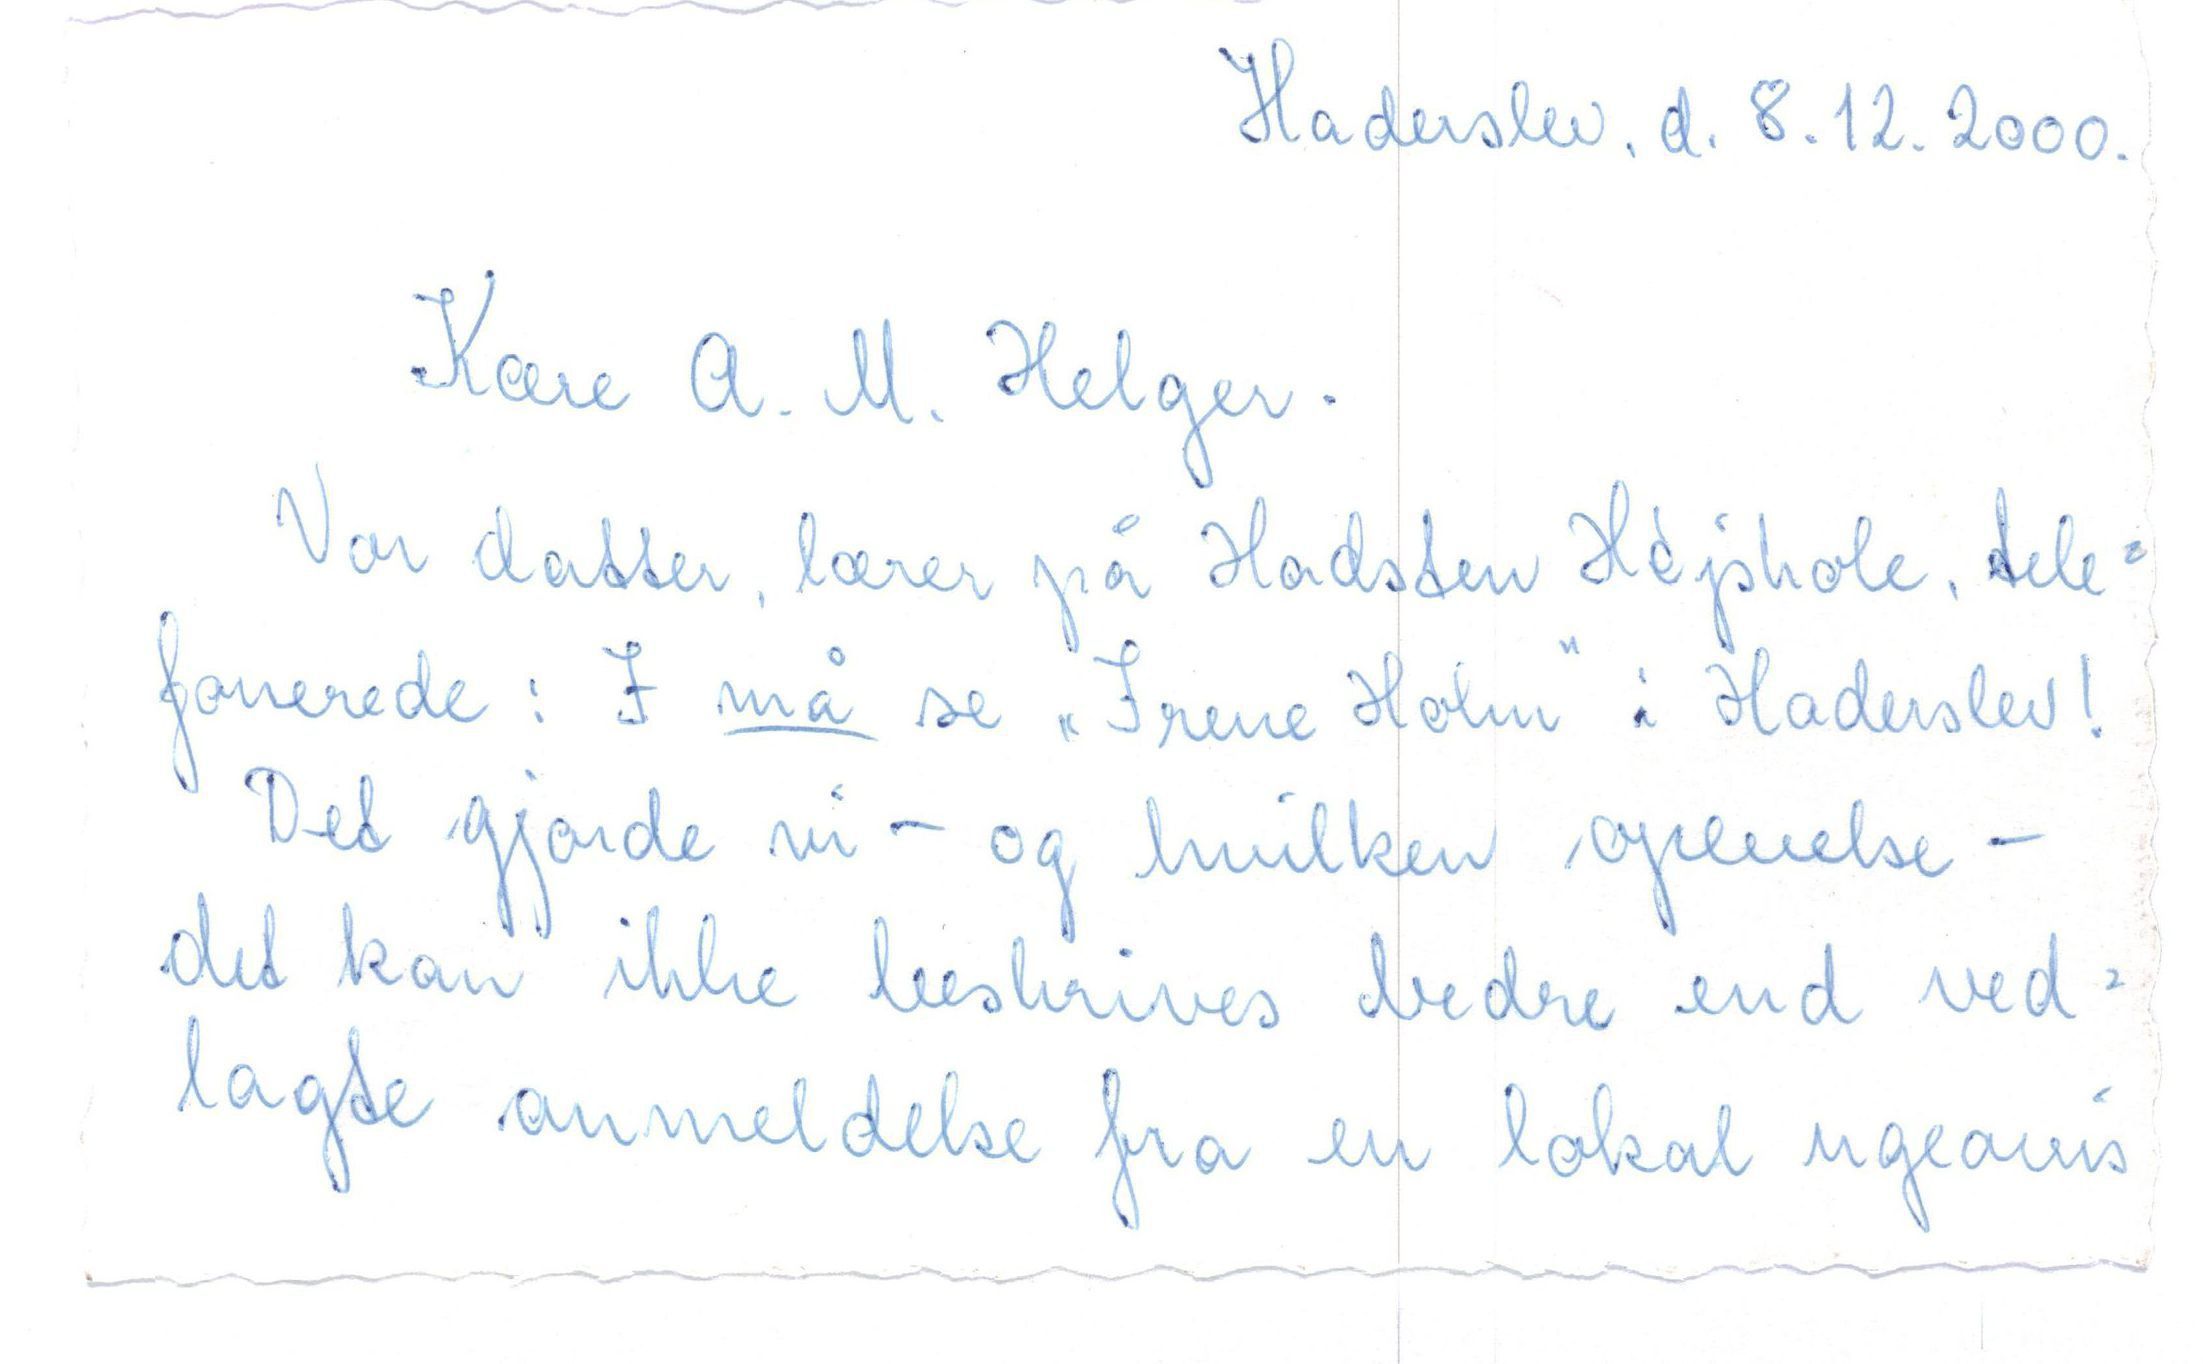 Haderslev, d. 8.12.2000.
Kære A. M. Helger.
Vor datter, lærer på Hadsten Højskole, tele=
fonerede: I må se „Irene Holm" i Haderslev!
Det gjorde vi - og hvilken oplevelse -
det kan ikke beskrives bedre end ved=
lagte anmeldelse fra en lokal ugeavis